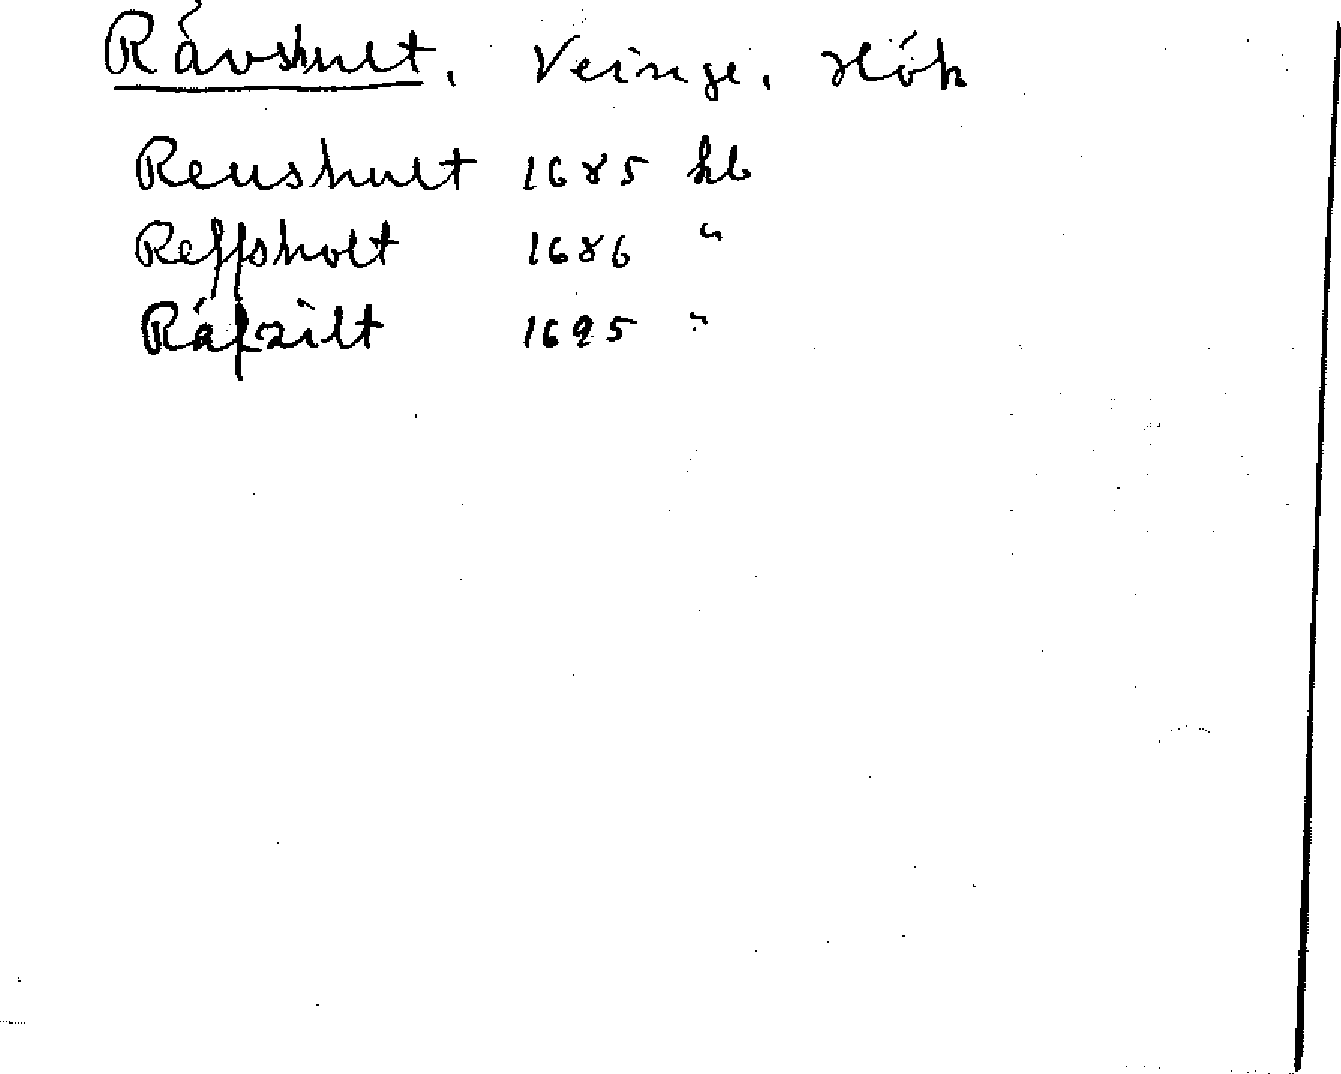 Rävshult, Veinge, Hök
Reushult 1685 hb
Reffsholt 1686 "
Räfzilt 1695 "